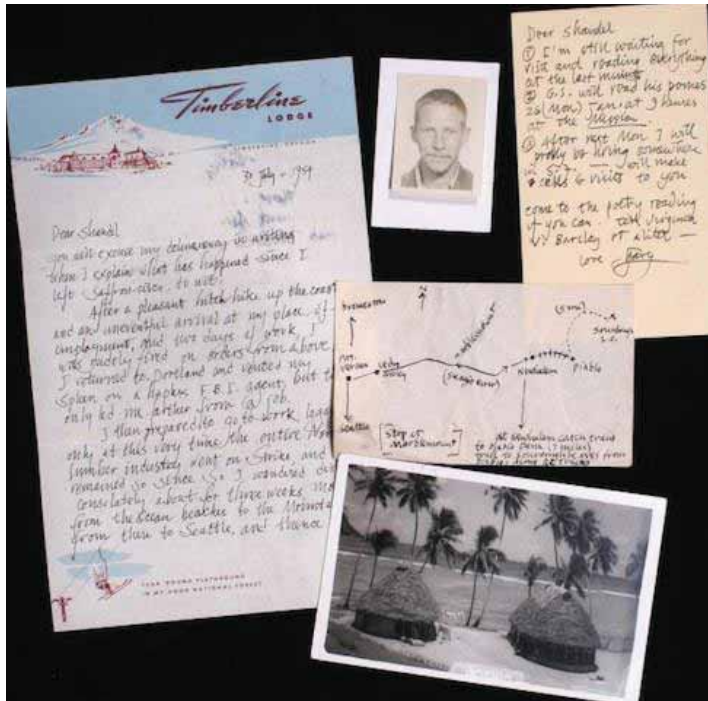 Timberline
LODGE
TIMBERLINE, OREGON
July - 1954
Dear Shandel
you will excuse my delinquency in writing
when I explain what has happened since I
left Saffron-river, to wit:
After a pleasant hitch hike up the coast
and an uneventful arrival at my place of
employment, and two days of work, I
was rudely fired on orders from above
I returned to Portland and vented my
spleen on a hapless F.B.I. agent, but
only led me farther from a job.
I then prepared to go to work
only at this very time the entire
lumber industry went on strike and
remained so since. So I wandered
about for three weeks,
from the ocean beaches to the
from there to Seattle, and thence
YEAR ROUND PLAYGROUND
IN MT. HOOD NATIONAL FOREST
Dear Shandel
① I'm still waiting for
visa and reading everything
at the last minute
② G.S. will read his pomes
26 (Mon) Jan. at 9
at the Mission
③ After next Mon I will
be living somewhere
in S.F. — will make
calls & visits to you
come to the poetry reading
if you can. tell Virginia
Barclay et alia —
love Gary
N
Bremerton
Seattle
Sedro
Woolley
Marblemount
(Skagit River)
Newhalem
Diablo
(5 mi)
Sourdough
L.O.
[Stop at
Marblemount]
At Newhalem catch train
to Diablo Dam (7 miles)